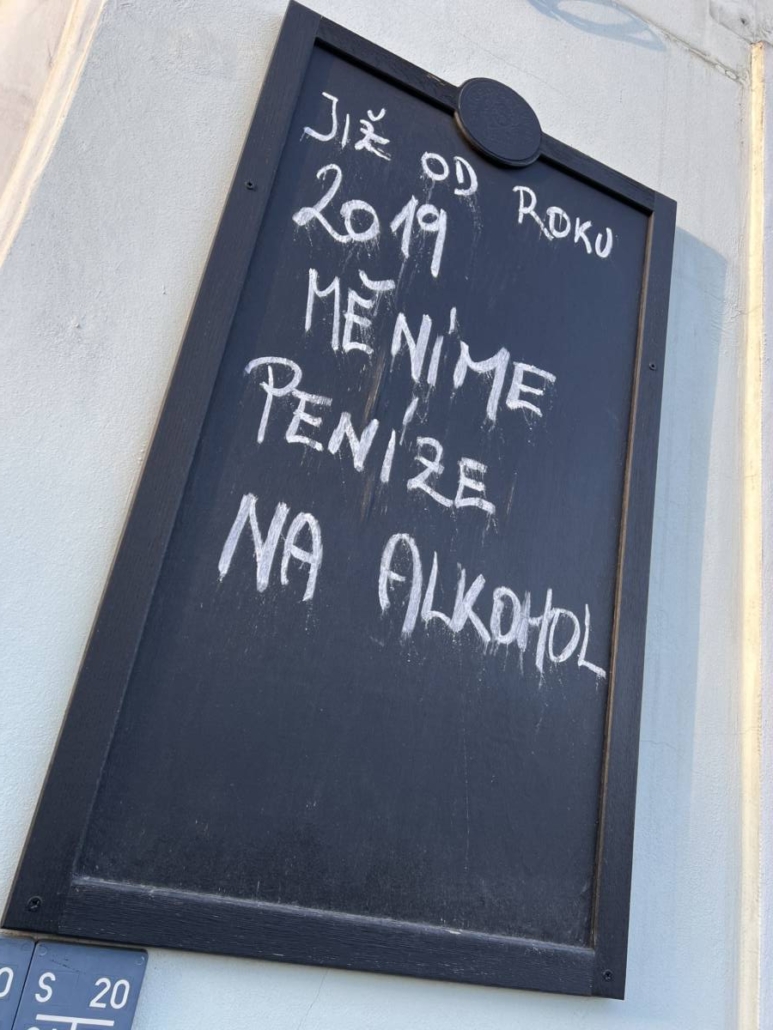 JIŽ OD ROKU
2019
MĚNÍME
PENÍZE
NA ALKOHOL
S 20